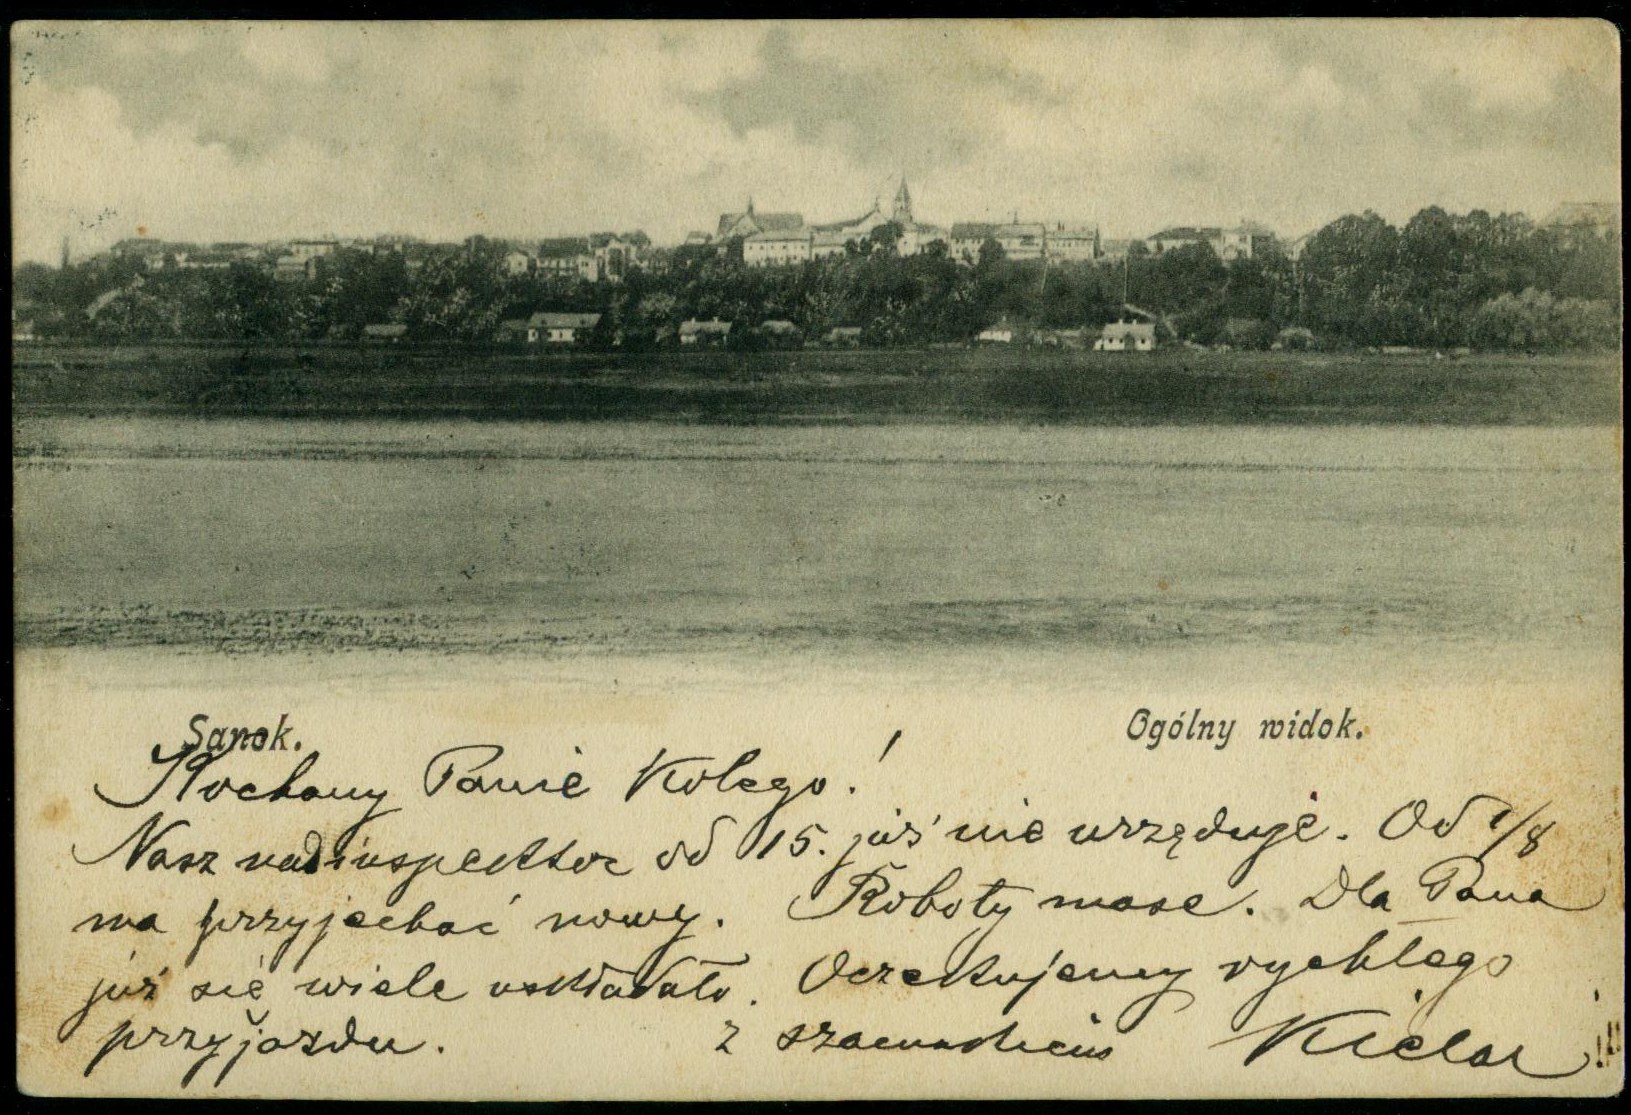 Sanok.
Ogólny widok.
Kochany Panie Kolego!
Nasz nadinspektor od 15. już nie urzęduje. Od 1/8
ma przyjechać nowy. Roboty masę. Dla Pana
już się wiele uskładało. Oczekujemy rychłego
przyjazdu. z szacunkiem Kielar